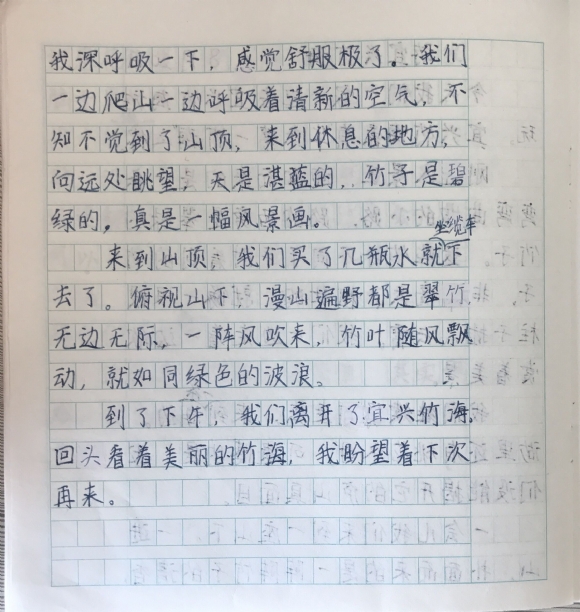 我深呼吸一下，感觉舒服极了。我们
一边爬山一边呼吸着清新的空气，不
知不觉到了山顶，来到休息的地方，
向远处眺望，天是湛蓝的，竹子是碧
绿的，真是一幅风景画。
坐缆车
来到山顶，我们买了几瓶水就下
去了。俯视山下，漫山遍野都是翠竹，
无边无际，一阵风吹来，竹叶随风飘
动，就如同绿色的波浪。
到了下午，我们离开了宜兴竹海，
回头看着美丽的竹海，我盼望着下次
再来。